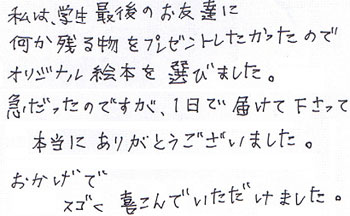 私は、学生最後のお友達に
何か残る物をプレゼントしたかったので
オリジナル絵本を選びました。
急だったのですが、1日で届けて下さって
本当にありがとうございました。
おかげで
スゴく喜こんでいただけました。